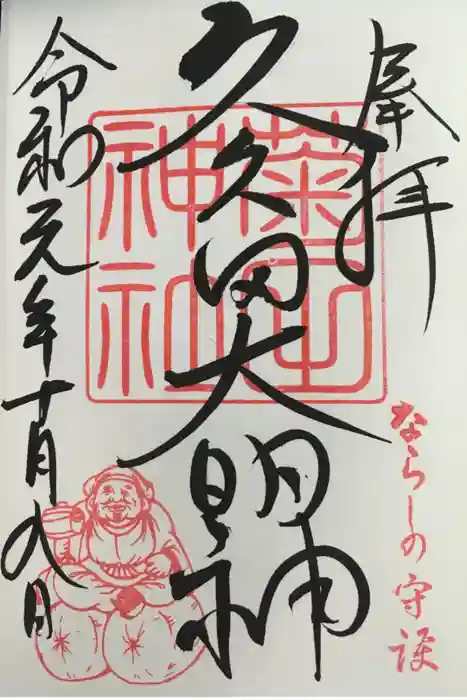 奉拝
久久田大明神
令和元年十月九日
菊田
神社
ならしの守護